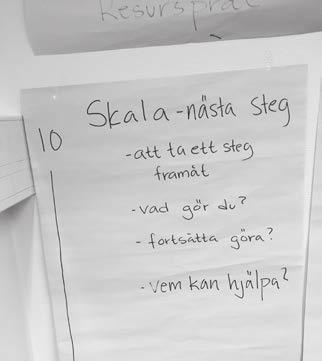 Resursprat
Skala - nästa steg
10
- att ta ett steg
framåt
- vad gör du?
- fortsätta göra?
- vem kan hjälpa?